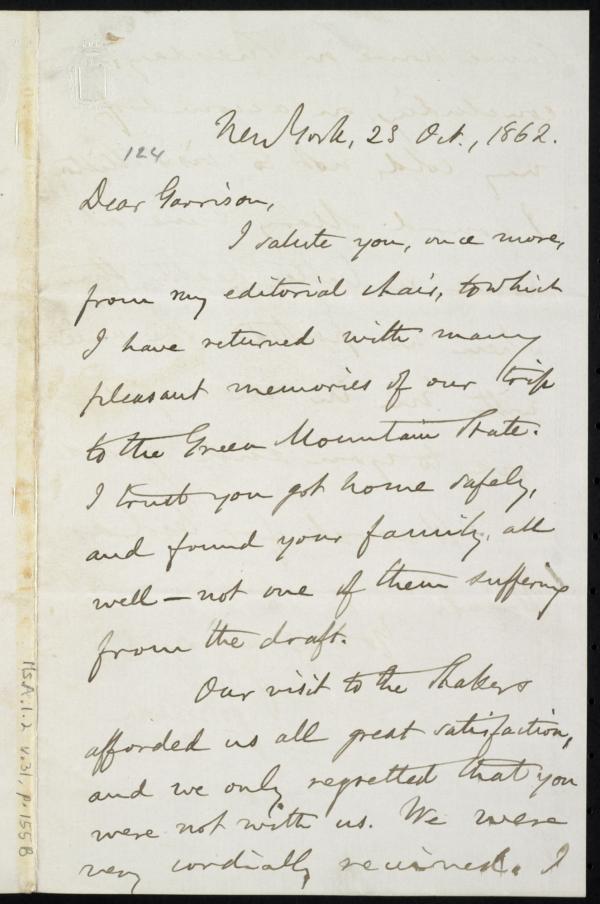 New York, 23 Oct., 1862.
124
Dear Garrison,
I salute you, once more,
from my editorial chair, to which
I have returned with many
pleasant memories of our trip
to the Green Mountain State.
I trust you got home safely,
and found your family, all
well — not one of them suffering
from the draft.
Our visit to the Shakers
afforded us all great satisfaction,
and we only regretted that you
were not with us. We were
very cordially received. I
Ms.A.1.2 v.31, p.155B